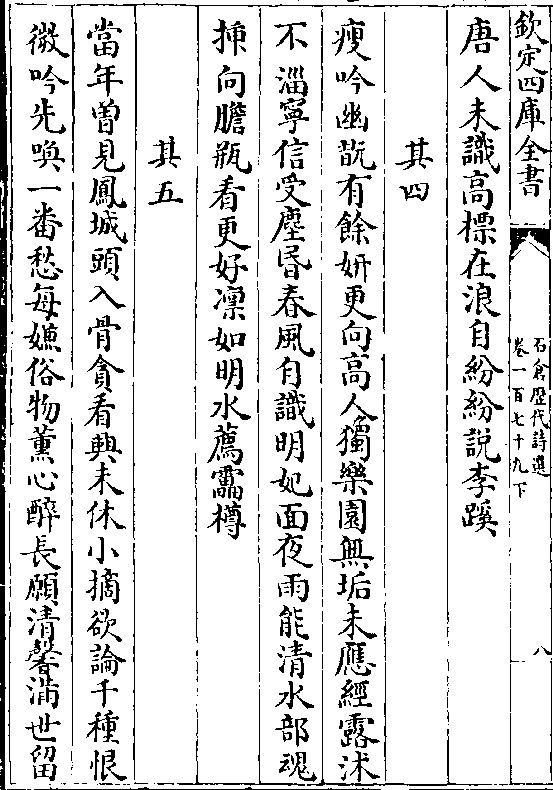 欽定四庫全書
石倉歴代詩選
卷一百七十九下
八
唐人未識高標在浪自紛紛說李蹊
其四
瘦吟幽翫有餘妍更向高人獨樂園無垢未應經露沐
不淄寧信受塵昬春風自識明妃面夜雨能清水部魂
揷向膽瓶看更好凛如明水薦罍樽
其五
當年曽見鳳城頭入骨貪看興未休小摘欲論千種恨
微吟先喚一畨愁每嫌俗物薫心醉長願清馨滿世留